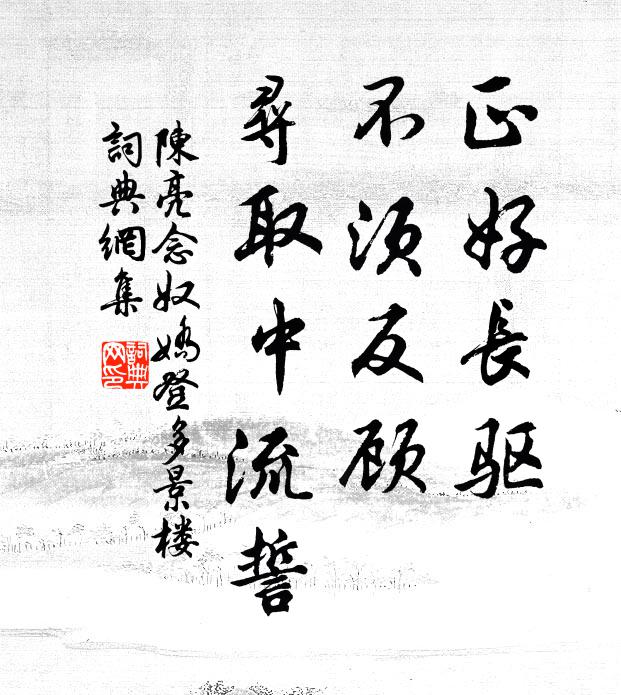 正好長驱
不须反顾
尋取中流誓
陳亮念奴嬌登多景楼
詞典網集
詞典
网印